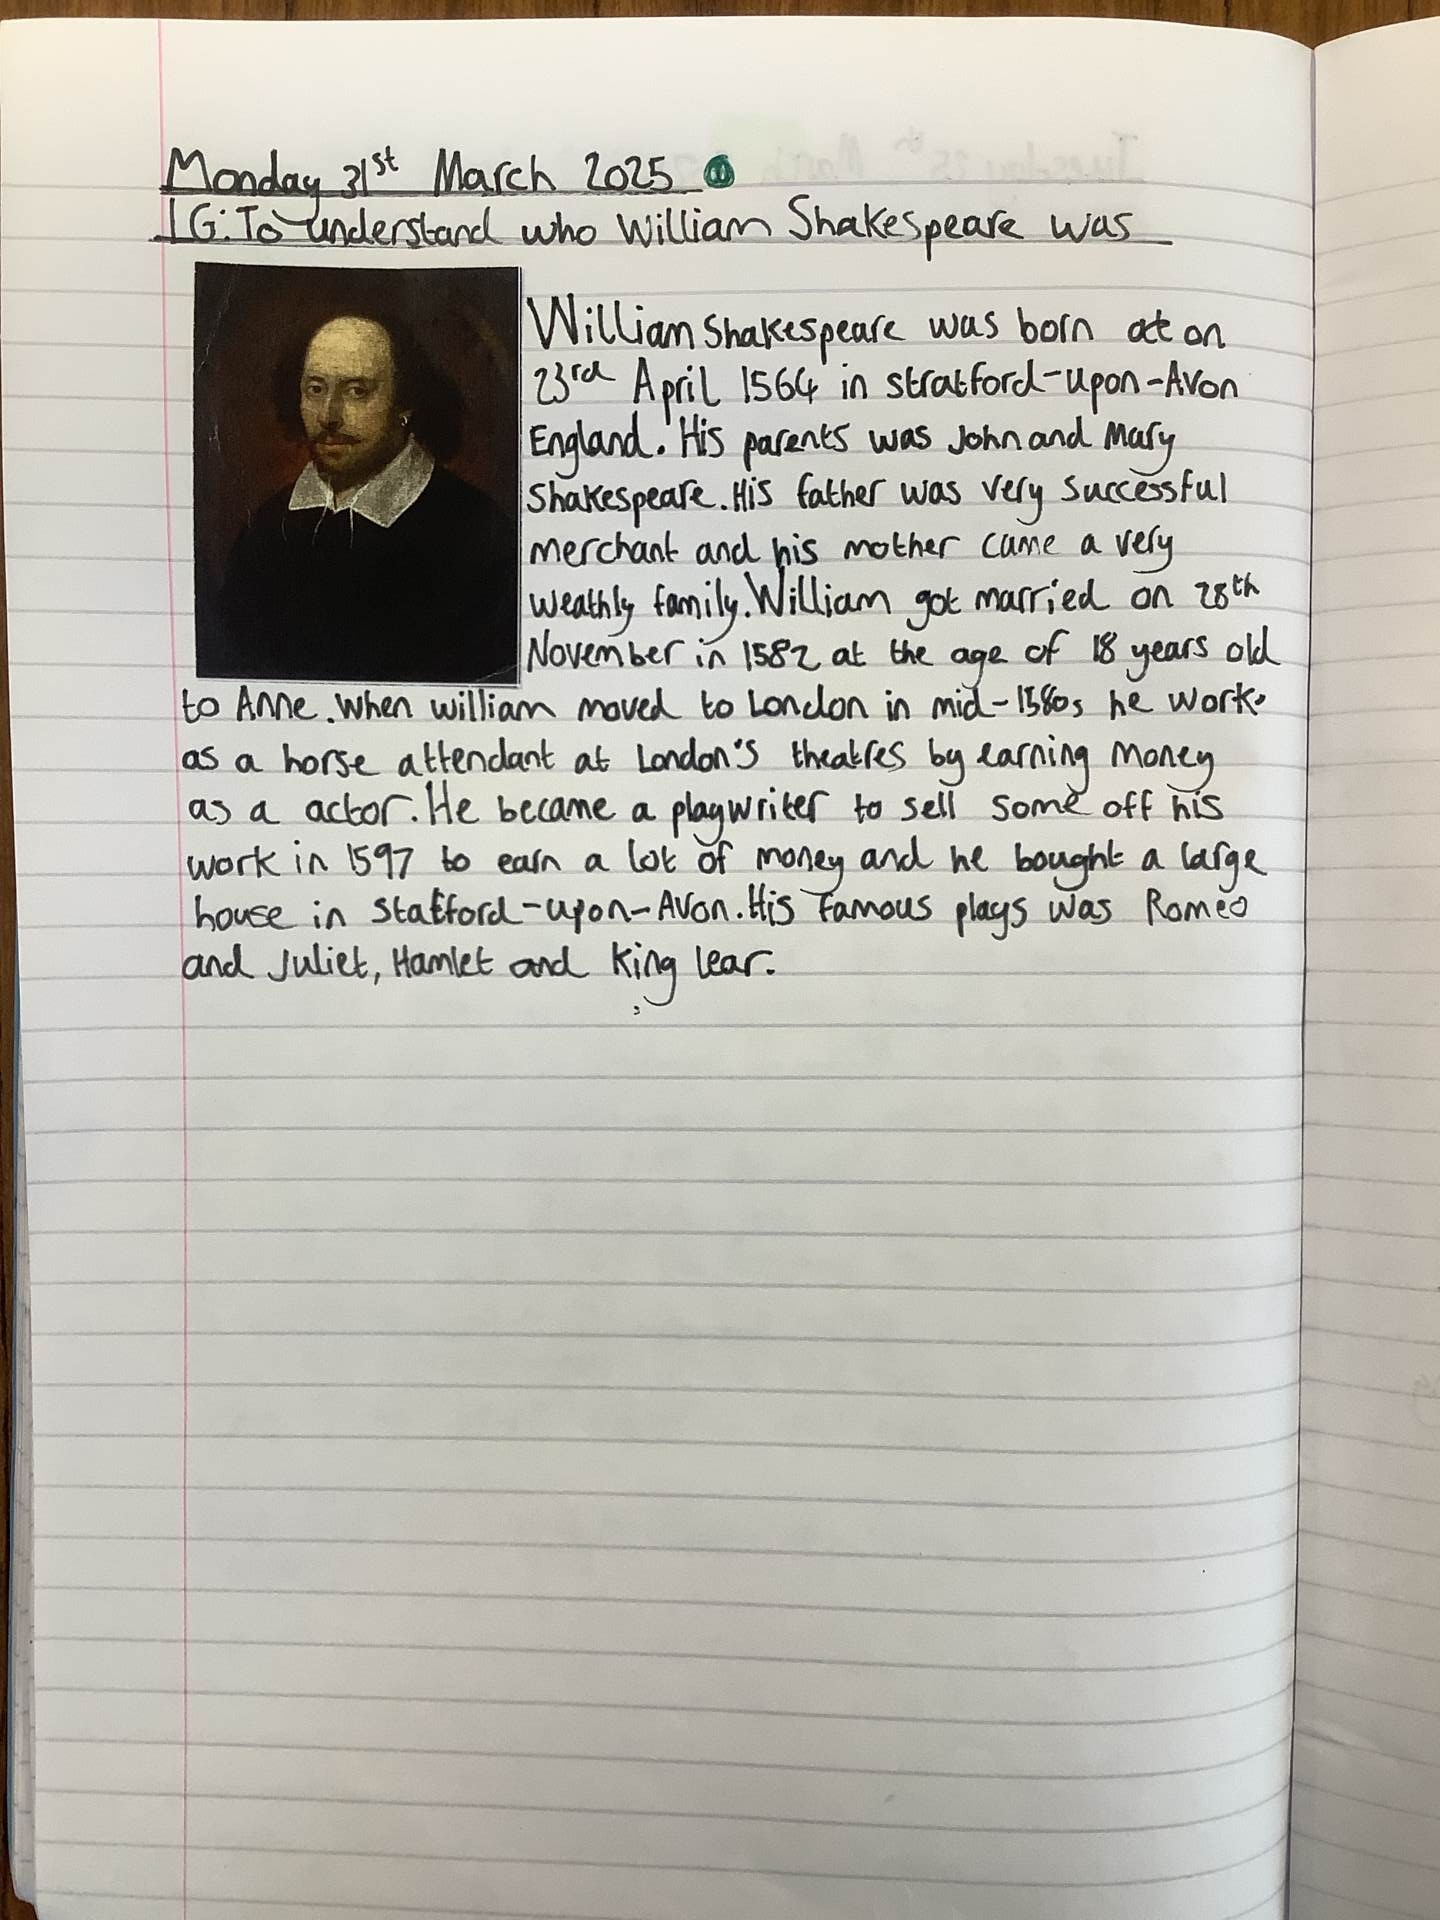 Monday 31st March 2025
LG: To understand who William Shakespeare was
William Shakespeare was born at on
23rd April 1564 in Stratford-upon-Avon
England. His parents was John and Mary
Shakespeare. His father was very successful
merchant and his mother came a very
weathly family. William got married on 28th
November in 1582 at the age of 18 years old
to Anne. When william moved to London in mid-1580s he work
as a horse attendant at London's theatres by earning money
as a actor. He became a playwriter to sell some off his
work in 1597 to earn a lot of money and he bought a large
house in Statford-upon-Avon. His famous plays was Romeo
and Juliet, Hamlet and King lear.